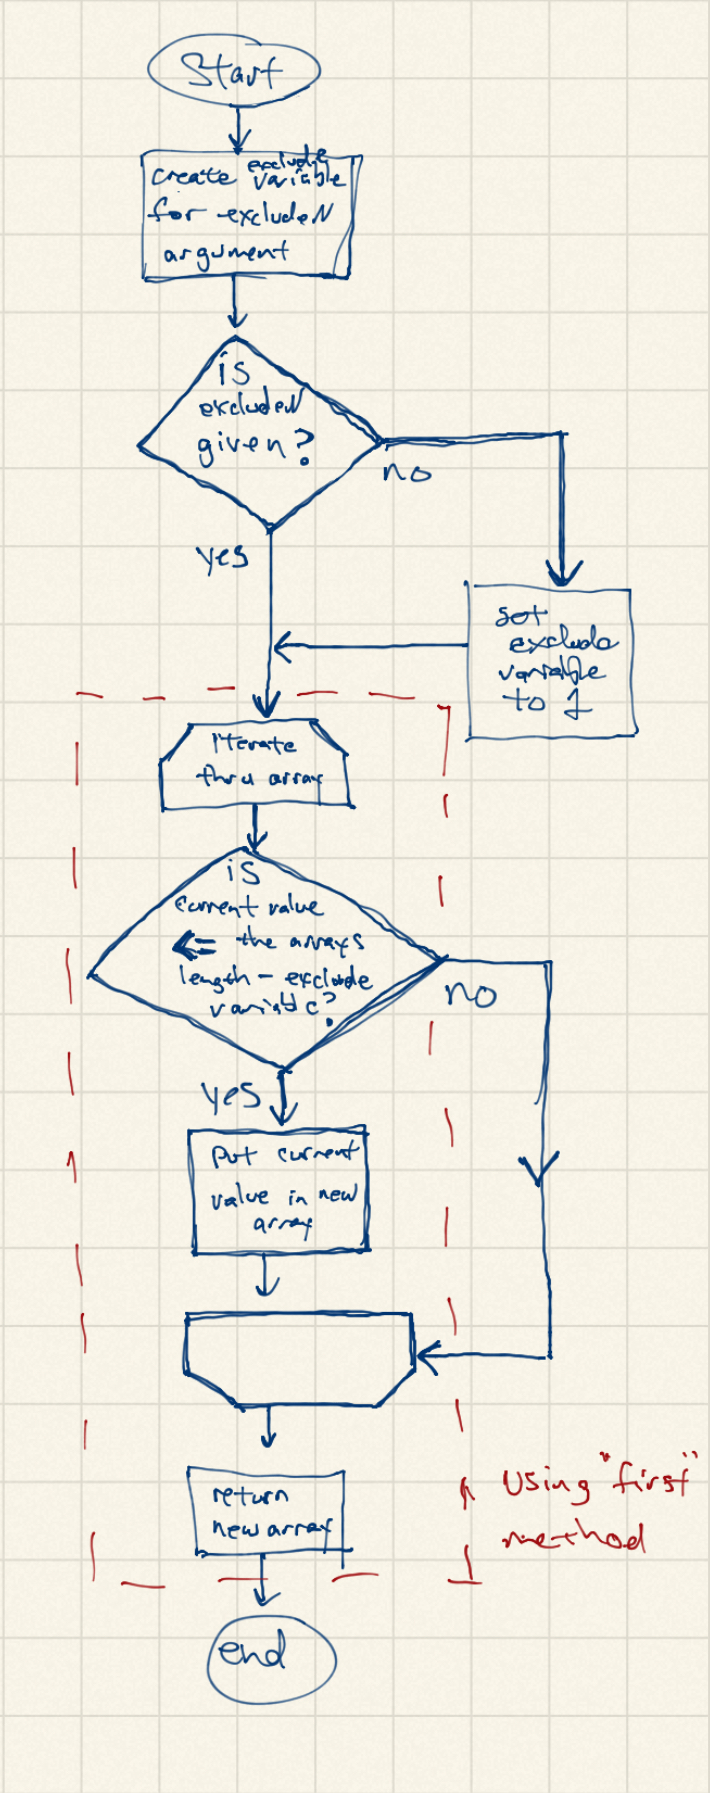 Start
exclude
create variable
for excludeN
argument
is
excludeN
given?
no
yes
set
exclude
variable
to 1
iterate
thru array
is
current value
<= the arrays
length - exclude
variable?
no
yes
put current
value in new
array
return
new array
using "first"
method
end